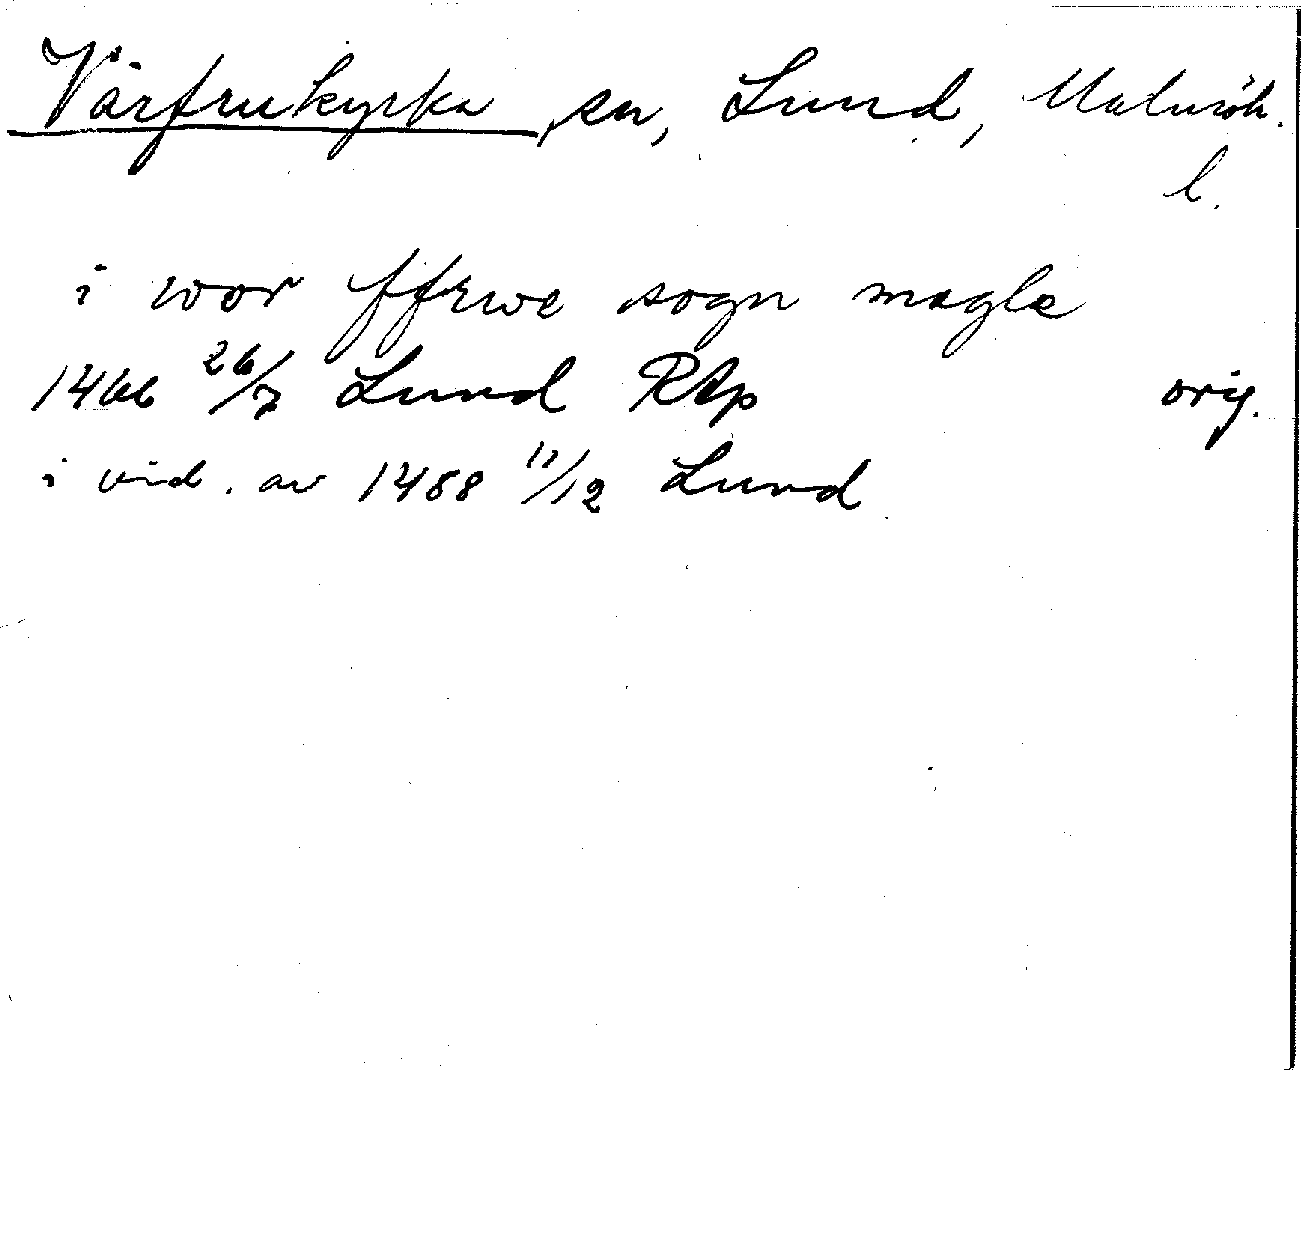 Vårfrukyrka, sn, Lund, Malmöh.
l.
i wor ffrwe sogn magle
1466 26/7 Lund RAp orig.
i vid. av 1488 11/12 Lund